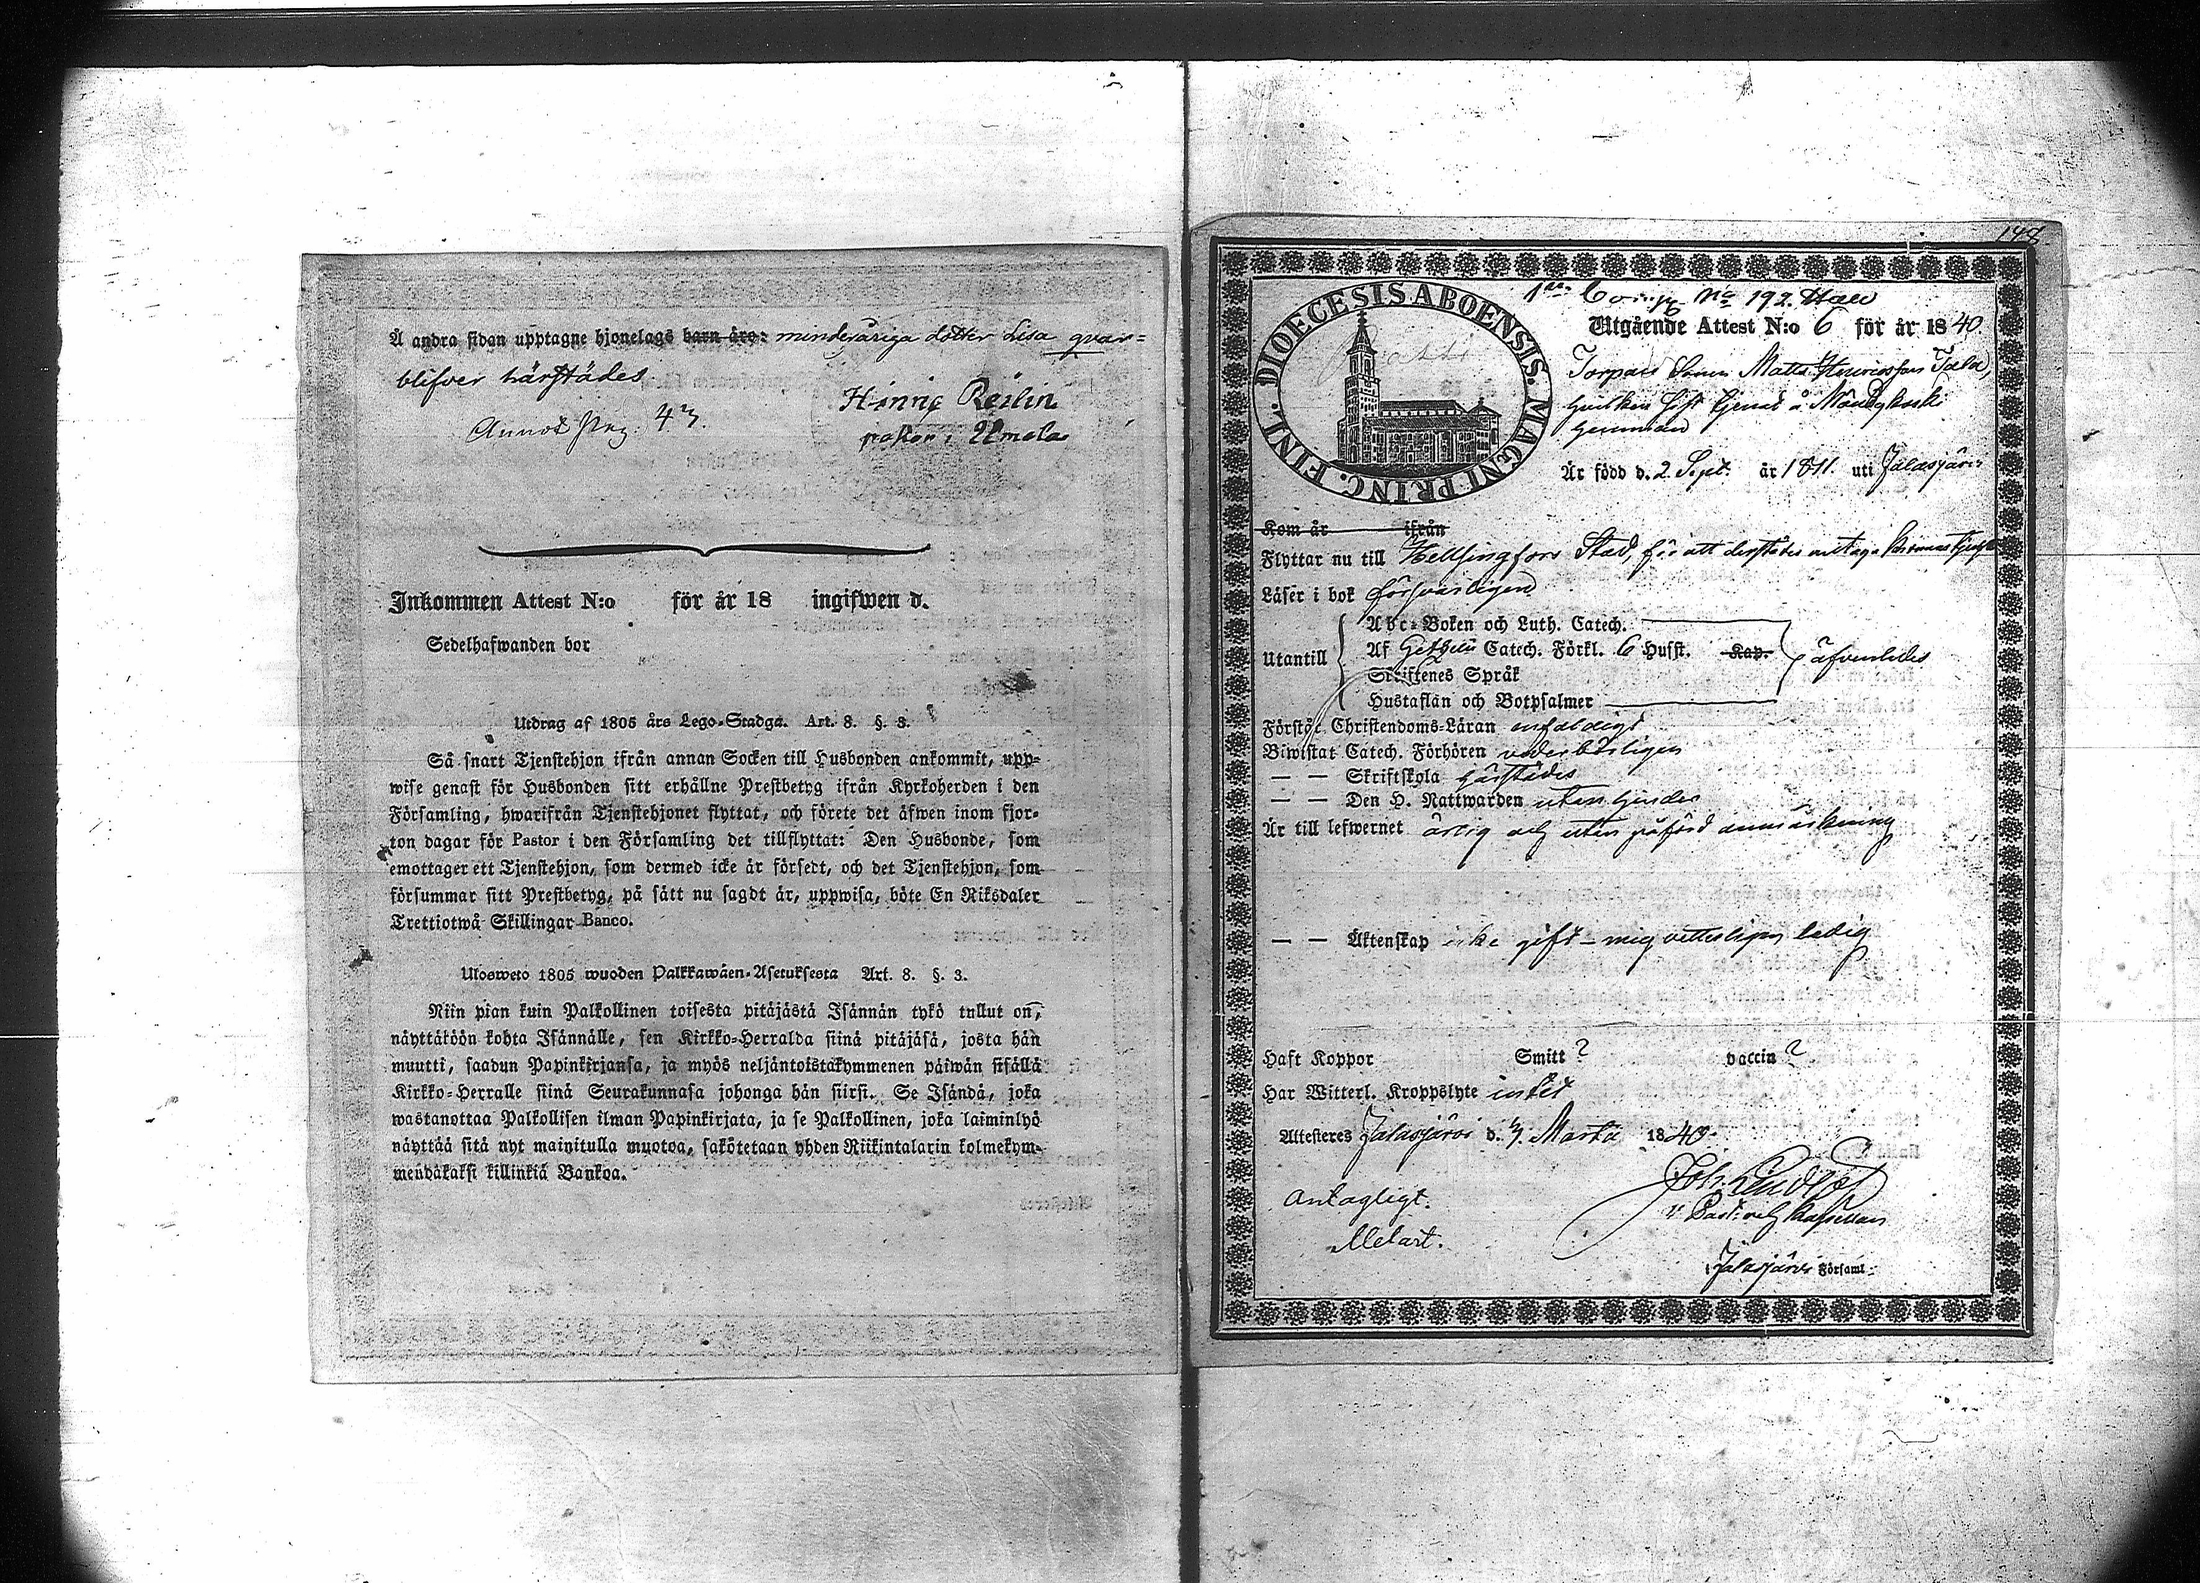 Å andra sidan upptagne hjonelags barn äro: minderåriga dotter Lisa qvar=
blifver härstädes
Henric Reilin
pastor i Ulmala
Inkommen Attest N:o för år 18 ingifwen d.
Sedelhafwanden bor
Utdrag af 1805 års Lego-Stadga. Art. 8. §. 3.
Så snart Tjenstehjon ifrån annan Socken till Husbonden ankommit, upp=
wise genast för Husbonden sitt erhållne Prestbetyg ifrån Kyrkoherden i den
Församling, hwarifrån Tjenstehjonet flyttat, och förete det äfwen inom fjor=
ton dagar för Pastor i den Församling det tillflyttat: Den Husbonde, som
emottager ett Tjenstehjon, som dermed icke är försedt, och det Tjenstehjon, som
försummar sitt Prestbetyg, på sätt nu sagdt är, uppwisa, böte En Riksdaler
Trettiotwå Skillingar Banco.
Ulosweto 1805 wuoden Palkkawäen-Asetuksesta Art. 8. §. 3.
Niin pian kuin Palkollinen toisesta pitäjästä Isännän tykö tullut on,
näyttäköön kohta Isännälle, sen Kirkko-Herralda siinä pitäjäsä, josta hän
muutti, saadun Papinkirjansa, ja myös neljäntoistakymmenen päiwän sisällä
Kirkko-Herralle siinä Seurakunnasa johonga hän siirsi. Se Isändä, joka
wastanottaa Palkollisen ilman Papinkirjata, ja se Palkollinen, joka laiminlyö
näyttää sitä nyt mainitulla muotoa, sakotetaan yhden Riikintalarin kolmekym-
mendäkaksi killinkiä Bankoa.
148.
DIOECESIS ABOENSIS. MAGNI PRINC. FINL.
No 192.
Utgående Attest N:o 6 för år 1840
Torpare Sonen Matts Henricsson Jala,
hvilken sist tjenat å
hemman
Är född d. 2 Sept. år 1811. uti Jalasjärvi
Kom år ifrån
Flyttar nu till Hellsingfors Stad, för att derstädes antaga
Läser i bok försvarligen
Utantill
Abc-Boken och Luth. Catech.
Af Catech. Förkl. 6 Hufst. Kap. äfvenledes
Skriftenes Språk
Hustaflan och Botpsalmer
Förstår Christendoms-Läran enfaldigt
Biwistat Catech. Förhören vederbörligen
— — Skriftskola härstädes
— — Den H. Nattwarden utan hinder
Är till lefwernet ärlig och utan påförd anmärkning
— — Äktenskap icke gift - mig vetterligen ledig
Haft Koppor Smitt ? vaccin ?
Har Witterl. Kroppslyte intet
Attesteres Jalasjärvi d. Martii 1840.
Antagligt.
Melart.
V. Past. och Kapellan
i Jalasjärvi Församl: